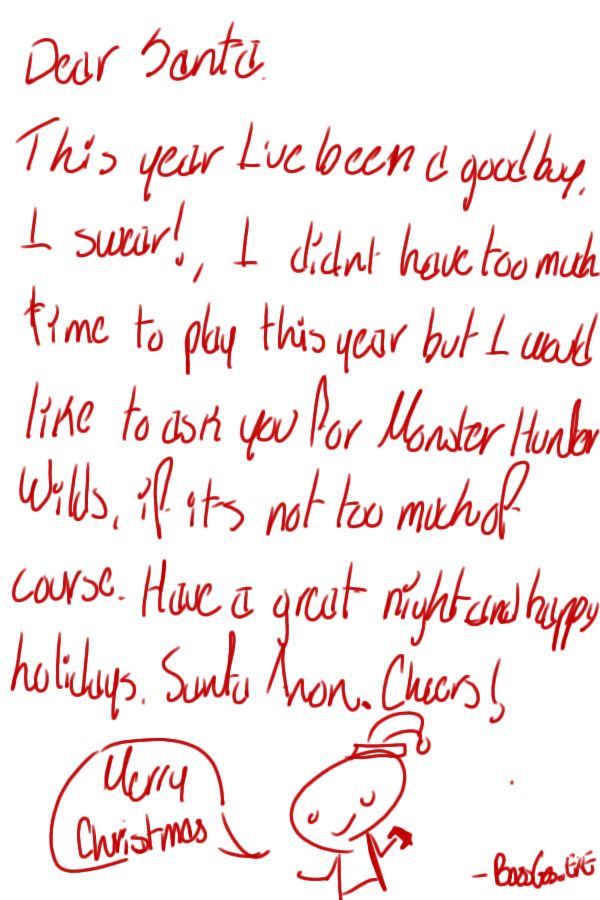 Dear Santa.
This year I've been a good boy,
I swear!, I didnt have too much
time to play this year but I would
like to ask you for Monster Hunter
Wilds, if it's not too much of
course. Have a great night and happy
holidays. Santa Anon. Cheers!
Merry
Christmas